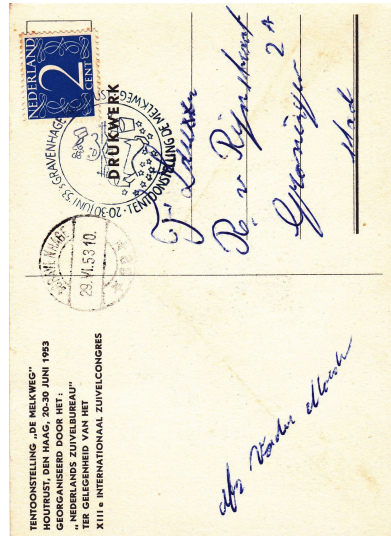 TENTOONSTELLING „DE MELKWEG"
HOUTRUST, DEN HAAG, 20-30 JUNI 1953
GEORGANISEERD DOOR HET:
„ NEDERLANDS ZUIVELBUREAU"
TER GELEGENHEID VAN HET
XIIIe INTERNATIONAAL ZUIVELCONGRES
NEDERLAND
2
CENT
DRUKWERK
20-30 JUNI 53 's GRAVENHAGE
TENTOONSTELLING DE MELKWEG
29.VI.53 10.
R v Rijnstraat
2 A
Groningen
Stad